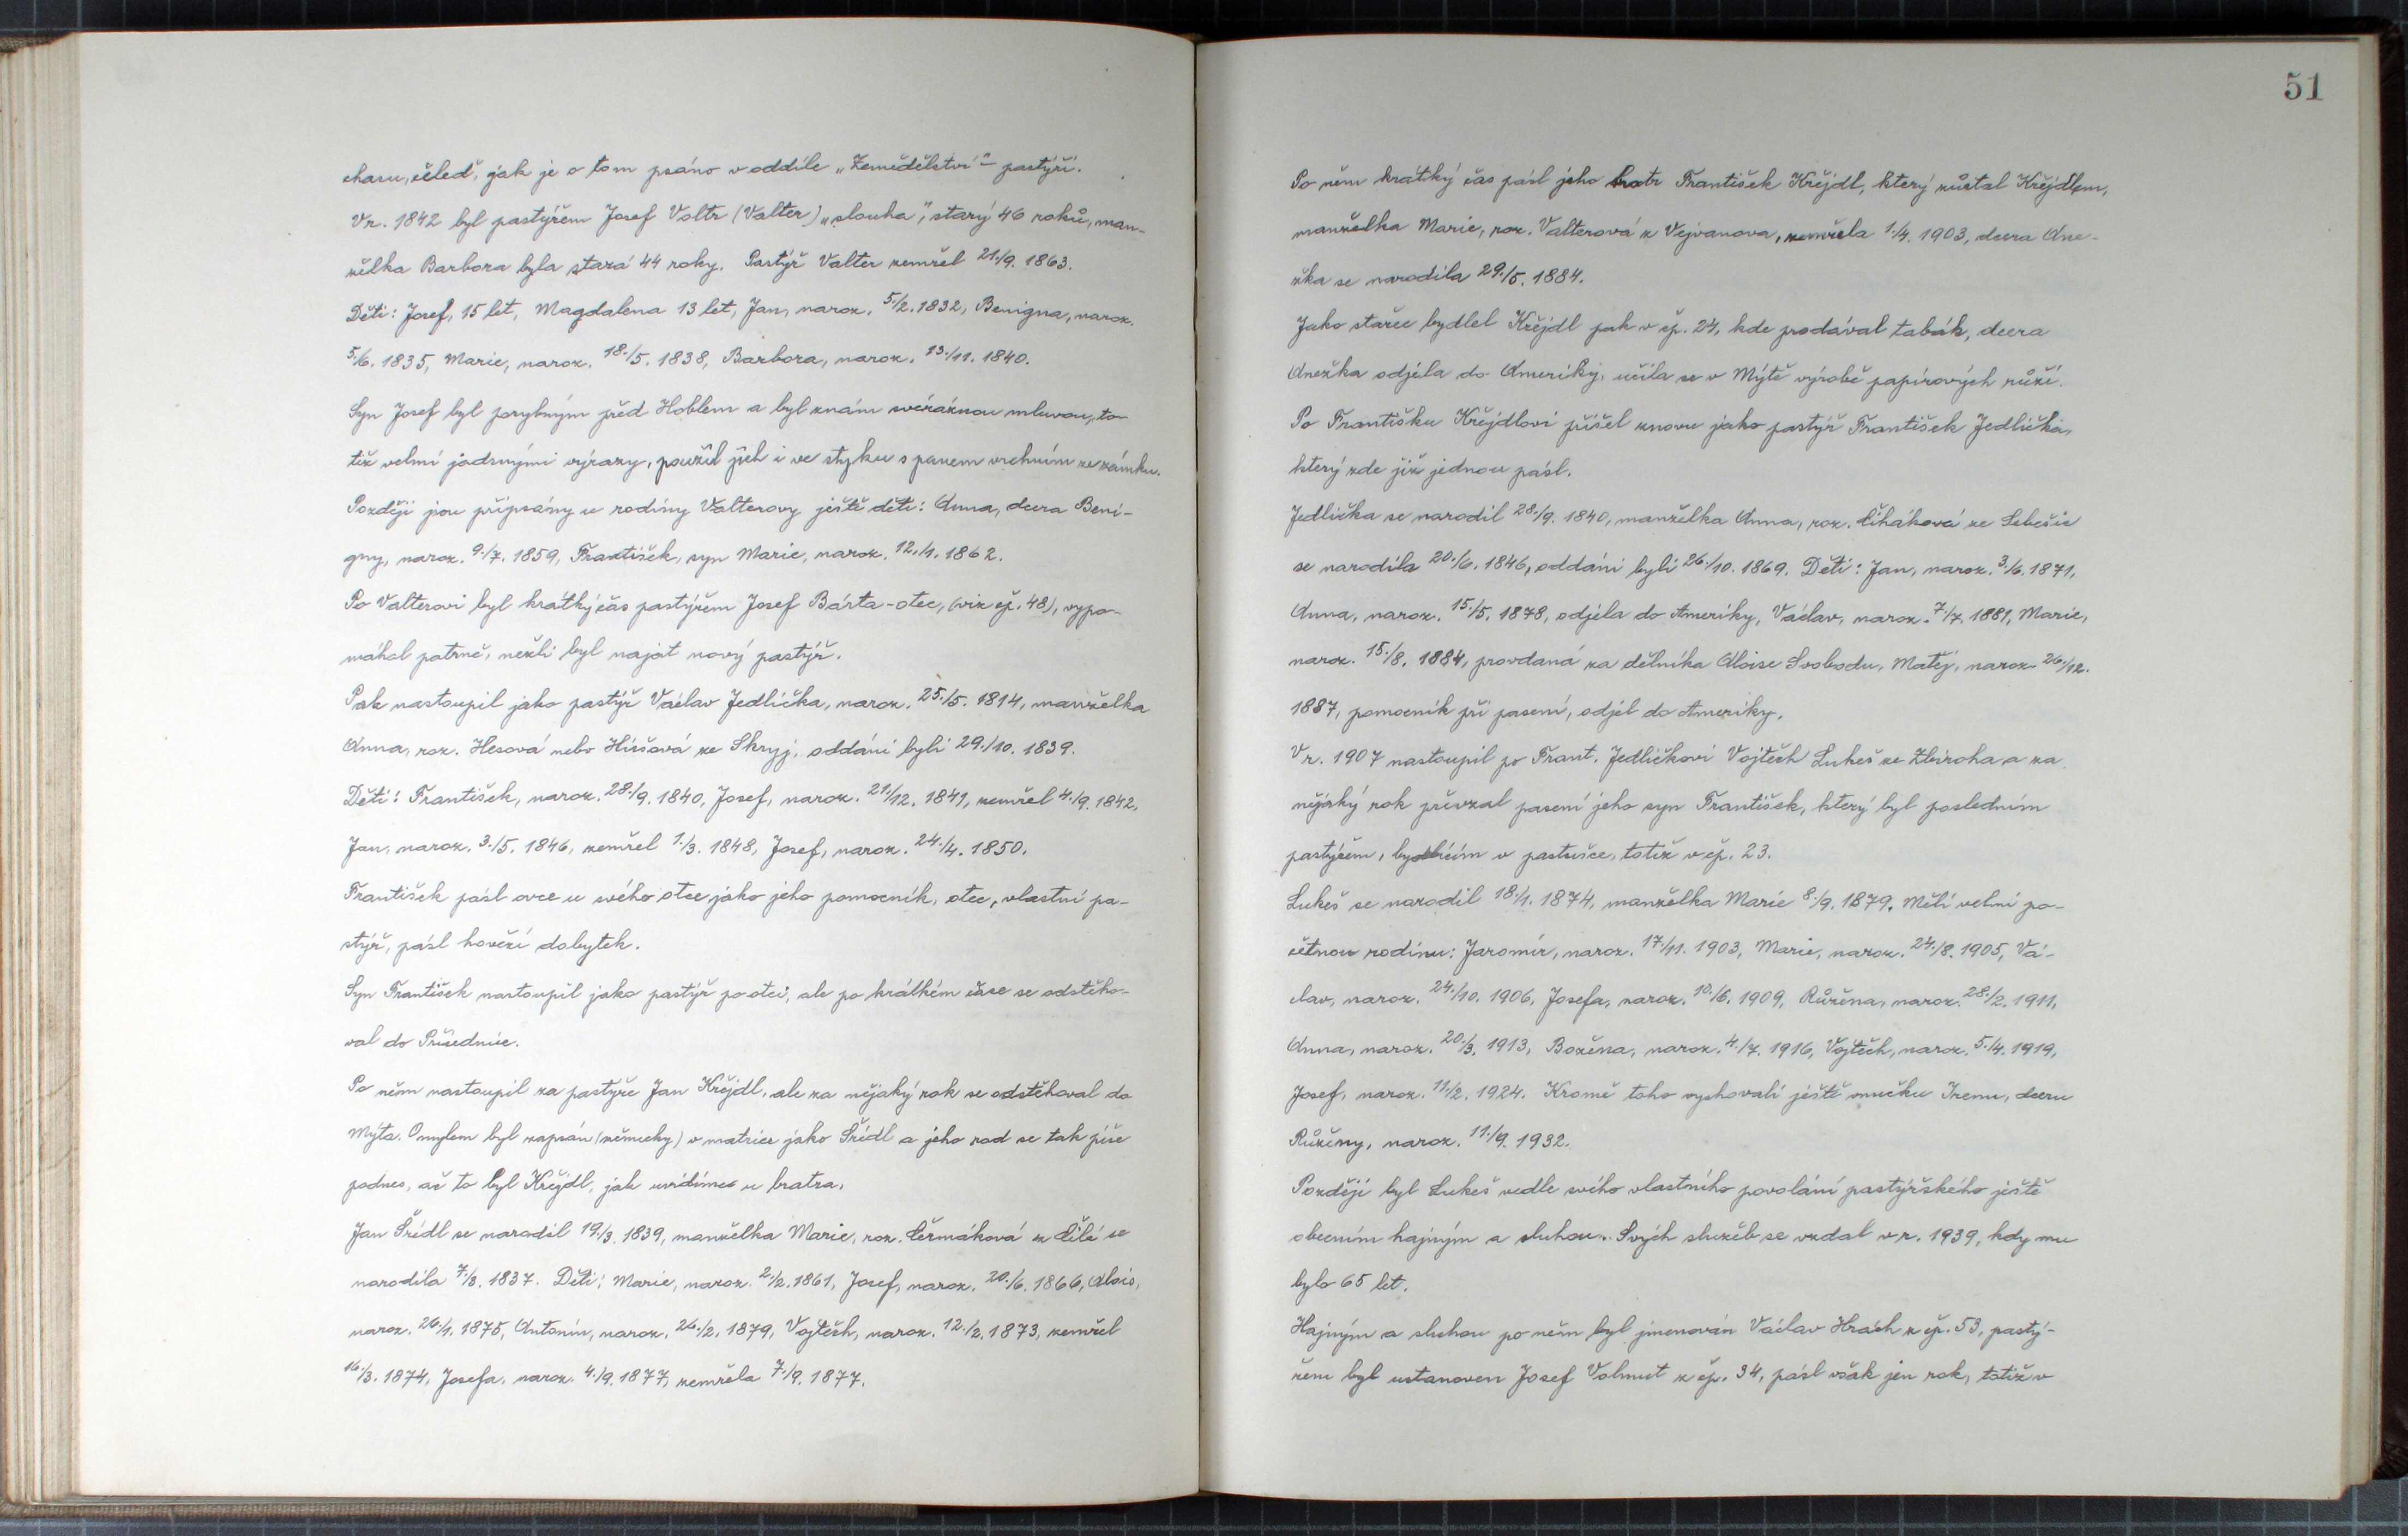 chasu, čeleď, jak je o tom psáno v oddíle „Zemědělství“ - pastýři.
V r. 1842 byl pastýřem Josef Voltr (Valter) „slouha“, starý 46 roků, man-
želka Barbora byla stará 44 roky. Pastýř Valter zemřel 21./9. 1863.
Děti: Josef, 15 let, Magdalena 13 let, Jan, naroz. 5./2. 1832, Benigna, naroz.
5./6. 1835, Marie, naroz. 18./5. 1838, Barbora, naroz. 13./11. 1840.
Syn Josef byl porybným před Hoblem a byl znám svéráznou mluvou, to-
tiž velmi jadrnými výrazy, použil jich i ve styku s panem vrchním ze zámku.
Později jsou připsány u rodiny Valterovy ještě děti: Anna, dcera Beni-
gny, naroz. 9./7. 1859, František, syn Marie, naroz. 12./1. 1862.
Po Valterovi byl krátký čas pastýřem Josef Bárta - otec, (viz čp. 48), vypo-
máhal patrně, nežli byl najat nový pastýř.
Pak nastoupil jako pastýř Václav Jedlička, naroz. 25./5. 1814, manželka
Anna, roz. Hesová nebo Hiršová ze Skryj, oddáni byli 29./10. 1839.
Děti: František, naroz. 28./9. 1840, Josef, naroz. 21./12. 1841, zemřel 4./9. 1842,
Jan, naroz. 3./5. 1846, zemřel 1./3. 1848, Josef, naroz. 24./4. 1850.
František pásl ovce u svého otce jako jeho pomocník, otec, vlastní pa-
stýř, pásl hovězí dobytek.
Syn František nastoupil jako pastýř po otci, ale po krátkém čase se odstěho-
val do Přísednice.
Po něm nastoupil za pastýře Jan Křejdl, ale za nějaký rok se odstěhoval do
Mýta. Omylem byl zapsán (německy) v matrice jako Šřédl a jeho rod se tak píše
podnes, ač to byl Křejdl, jak uvidíme u bratra.
Jan Šřédl se narodil 19./3. 1839, manželka Marie, roz. Čermáková z Čilé se
narodila 7./3. 1837. Děti: Marie, naroz. 2./2. 1861, Josef, naroz. 20./6. 1866, Alois,
naroz. 26./1. 1875, Antonín, naroz. 26./2. 1879, Vojtěch, naroz. 12./2. 1873, zemřel
16./3. 1874, Josefa, naroz. 4./9. 1877, zemřela 7./9. 1877.
51
Po něm krátký čas pásl jeho bratr František Křejdl, který zůstal Křejdlem,
manželka Marie, roz. Valterová z Vejvanova, zemřela 1./4. 1903, dcera Ane-
žka se narodila 29./5. 1884.
Jako stařec bydlel Křejdl pak v čp. 24, kde prodával tabák, dcera
Anežka odjela do Ameriky, učila se v Mýtě výrobě papírových růží.
Po Františku Křejdlovi přišel znovu jako pastýř František Jedlička,
který zde již jednou pásl.
Jedlička se narodil 28./9. 1840, manželka Anna, roz. Čiháková ze Sebešic
se narodila 20./6. 1846, oddáni byli 26./10. 1869. Děti: Jan, naroz. 3./6. 1871,
Anna, naroz. 15./5. 1878, odjela do Ameriky, Václav, naroz. 7./7. 1881, Marie,
naroz. 15./8. 1884, provdaná za dělníka Aloise Svobodu, Matěj, naroz. 26./12.
1887, pomocník při pasení, odjel do Ameriky.
V r. 1907 nastoupil po Frant. Jedličkovi Vojtěch Lukeš ze Zbiroha a za
nějaký rok převzal pasení jeho syn František, který byl posledním
pastýřem, bydlícím v pastušce, totiž v čp. 23.
Lukeš se narodil 18./1. 1874, manželka Marie 8./9. 1879. Měli velmi po-
četnou rodinu: Jaromír, naroz. 17./11. 1903, Marie, naroz. 24./8. 1905, Vá-
clav, naroz. 24./10. 1906, Josefa, naroz. 10./6. 1909, Růžena, naroz. 28./2. 1911,
Anna, naroz. 20./3. 1913, Božena, naroz. 4./7. 1916, Vojtěch, naroz. 5./4. 1919,
Josef, naroz. 11./2. 1924. Kromě toho vychovali ještě vnučku Irenu, dceru
Růženy, naroz. 11./9. 1932.
Později byl Lukeš vedle svého vlastního povolání pastýřského ještě
obecním hajným a sluhou. Svých služeb se vzdal v r. 1939, kdy mu
bylo 65 let.
Hajným a sluhou po něm byl jmenován Václav Hrách z čp. 53, pastý-
řem byl ustanoven Josef Volmut z čp. 34, pásl však jen rok, totiž v